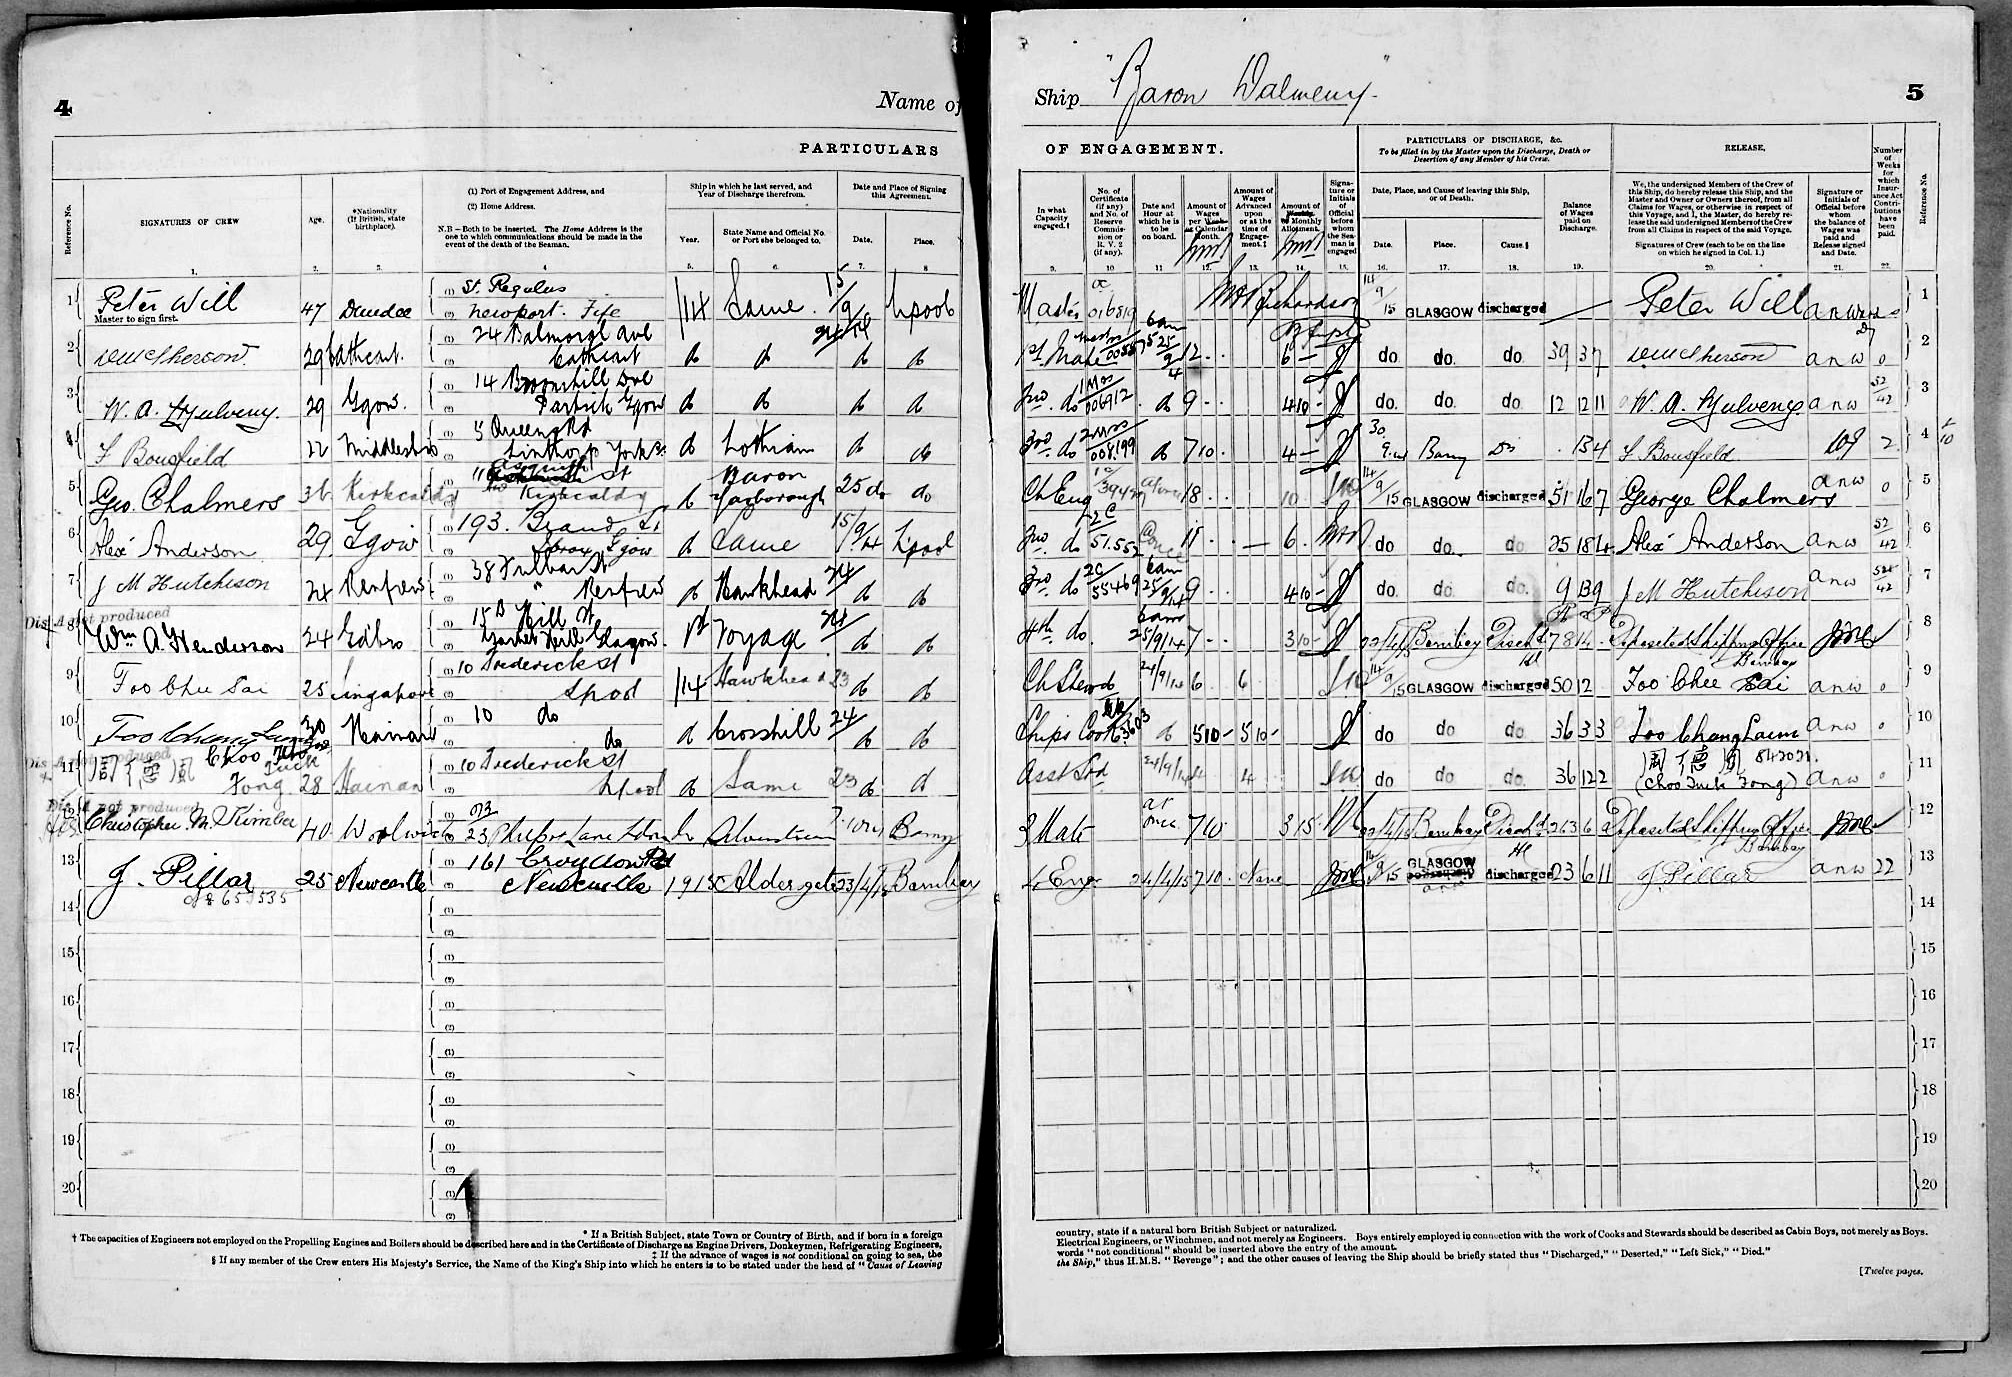 4
Name of
PARTICULARS
Reference No.
SIGNATURES OF CREW
Age.
*Nationality
(If British, state
birthplace).
(1) Port of Engagement Address, and
(2) Home Address.
N.B—Both to be inserted. The Home Address is the
one to which communications should be made in the
event of the death of the Seaman.
Ship in which he last served, and
Year of Discharge therefrom.
Year.
State Name and Official No.
or Port she belonged to.
Date and Place of Signing
this Agreement.
Date.
Place.
1. 2. 3. 4 5. 6. 7. 8
1 Peter Will 47 Dundee St. Regulus Newport. Fife 14 Same. 15/9/14 L'pool
Master to sign first.
2 29 Cathcart. 24 Balmoral Ave Cathcart do do do do
3 W. A. Mulveny. 29 Ggow. 14 Broomhill Ave Partick Ggow do do do do
4 F Bousfield 22 Middlesbro 5 Queens Rd Linthorp Yorks. do Lothian do do
5 Geo. Chalmers 36 Kirkcaldy St Kirkcaldy do Baron Yarborough 25 do do
6 Alex Anderson 29 Ggow 193. Brand St Ibrox Ggow do Same 15/9/14 L'pool
7 J M Hutchison 24 Renfrew 38 Fulbar St " Renfrew do Hawkhead 24 do do
Dis A not produced
8 Wm A. Henderson 24 Edbro 15 Hill St Garnet Hill Glasgow. 1st Voyage 24 do do
9 Foo Chee Sai 25 Singapore 10 Frederick St Lpool 14 Hawkhead 23 do do
10 Foo Chang Laim 30 Hainan 10 do do do Crosshill 24 do do
Dis A not produced
11 周德風 Choo Tuck Fong 28 Hainan 10 Frederick St Lpool do Same 23 do do
Dis A not produced
12 Christopher M. Kimber 40 Woolwich 23 Barry
13 J. Pillar 25 Newcastle 161 Croydon Rd Newcastle 1915 Aldergate 23/4/15 Bombay
14
15
16
17
18
19
20
(1)
(2)
* If a British Subject, state Town or Country of Birth, and if born in a foreign
† The capacities of Engineers not employed on the Propelling Engines and Boilers should be described here and in the Certificate of Discharge as Engine Drivers, Donkeymen, Refrigerating Engineers,
‡ If the advance of wages is not conditional on going to sea, the
§ If any member of the Crew enters His Majesty's Service, the Name of the King's Ship into which he enters is to be stated under the head of "Cause of Leaving
Ship "Baron Dalmeny"
5
OF ENGAGEMENT.
PARTICULARS OF DISCHARGE, &c.
To be filled in by the Master upon the Discharge, Death or
Desertion of any Member of his Crew.
RELEASE,
In what
Capacity
engaged.†
No. of
Certificate
(if any)
and No. of
Reserve
Commis-
sion or
R. V. 2
(if any).
Date and
Hour at
which he is
to be
on board.
Amount of
Wages
per Week
or Calendar
Month.
Amount of
Wages
Advanced
upon
or at the
time of
Engage-
ment.‡
Amount of
Weekly
or Monthly
Allotment.
Signa-
ture or
Initials
of
Official
before
whom
the Sea-
man is
engaged
Date, Place, and Cause of leaving this Ship,
or of Death.
Date.
Place.
Cause.§
Balance
of Wages
paid on
Discharge.
We, the undersigned Members of the Crew of
this Ship, do hereby release this Ship, and the
Master and Owner or Owners thereof, from all
Claims for Wages, or otherwise in respect of
this Voyage, and I, the Master, do hereby re-
lease the said undersigned Members of the Crew
from all Claims in respect of the said Voyage.
Signatures of Crew (each to be on the line
on which he signed in Col. 1.)
Signature or
Initials of
Official before
whom
the balance of
Wages was
paid and
Release signed
and Date.
Number
of
Weeks
for
which
Insur-
ance Act
Contri-
butions
have
been
paid.
Reference No.
9. 10 11 12. 13. 14. 15. 16. 17. 18. 19. 20. 21. 22.
Master 016819 14/9/15 GLASGOW discharged Peter Will 1
1st Mate 12 6 do do. do. 39 3 7 0 2
2nd do 006912 do 9 4 10 do. do. do 12 12 11 W. A. Mulveny anw 52/42 3
3rd do 008199 do 7 10 4 30 Barry Dis 13 4 F Bousfield 2 4
Ch Eng 18 10 14/9/15 GLASGOW discharged 51 16 7 George Chalmers anw 0 5
2nd do 2C 51.552 11 6 do do. do. 25 18 4 Alex Anderson anw 52/42 6
3rd do 2C 55469 6am 25/9/14 9 4 10 do. do. do. 9 13 9 J M Hutchison anw 52/42 7
4th do. 6am 25/9/14 7 3 10 Bombay Disch'd 78 14 Deposited Shipping Office Bombay 8
Ch Steward 24/9/14 6 6 14/9/15 GLASGOW discharged 50 12 Foo Chee Sai anw 0 9
Chips Cook do 5 10 5 10 do do do 36 3 3 Foo Chang Laim anw 0 10
Asst Std 4 do do do. 36 12 2 周德風 (Choo Tuck Fong) anw 0 11
2 Mate at once 7 10 3 15 Bombay Disch'd Deposited Shipping Office Bombay 12
4 Engr 24/4/15 7 10 None 14/9/15 GLASGOW discharged 23 6 11 J. Pillar anw 22 13
14
15
16
17
18
19
20
country, state if a natural born British Subject or naturalized.
Electrical Engineers, or Winchmen, and not merely as Engineers. Boys entirely employed in connection with the work of Cooks and Stewards should be described as Cabin Boys, not merely as Boys.
words "not conditional" should be inserted above the entry of the amount.
the Ship," thus H.M.S. "Revenge"; and the other causes of leaving the Ship should be briefly stated thus "Discharged," "Deserted," "Left Sick," "Died."
[Twelve pages.